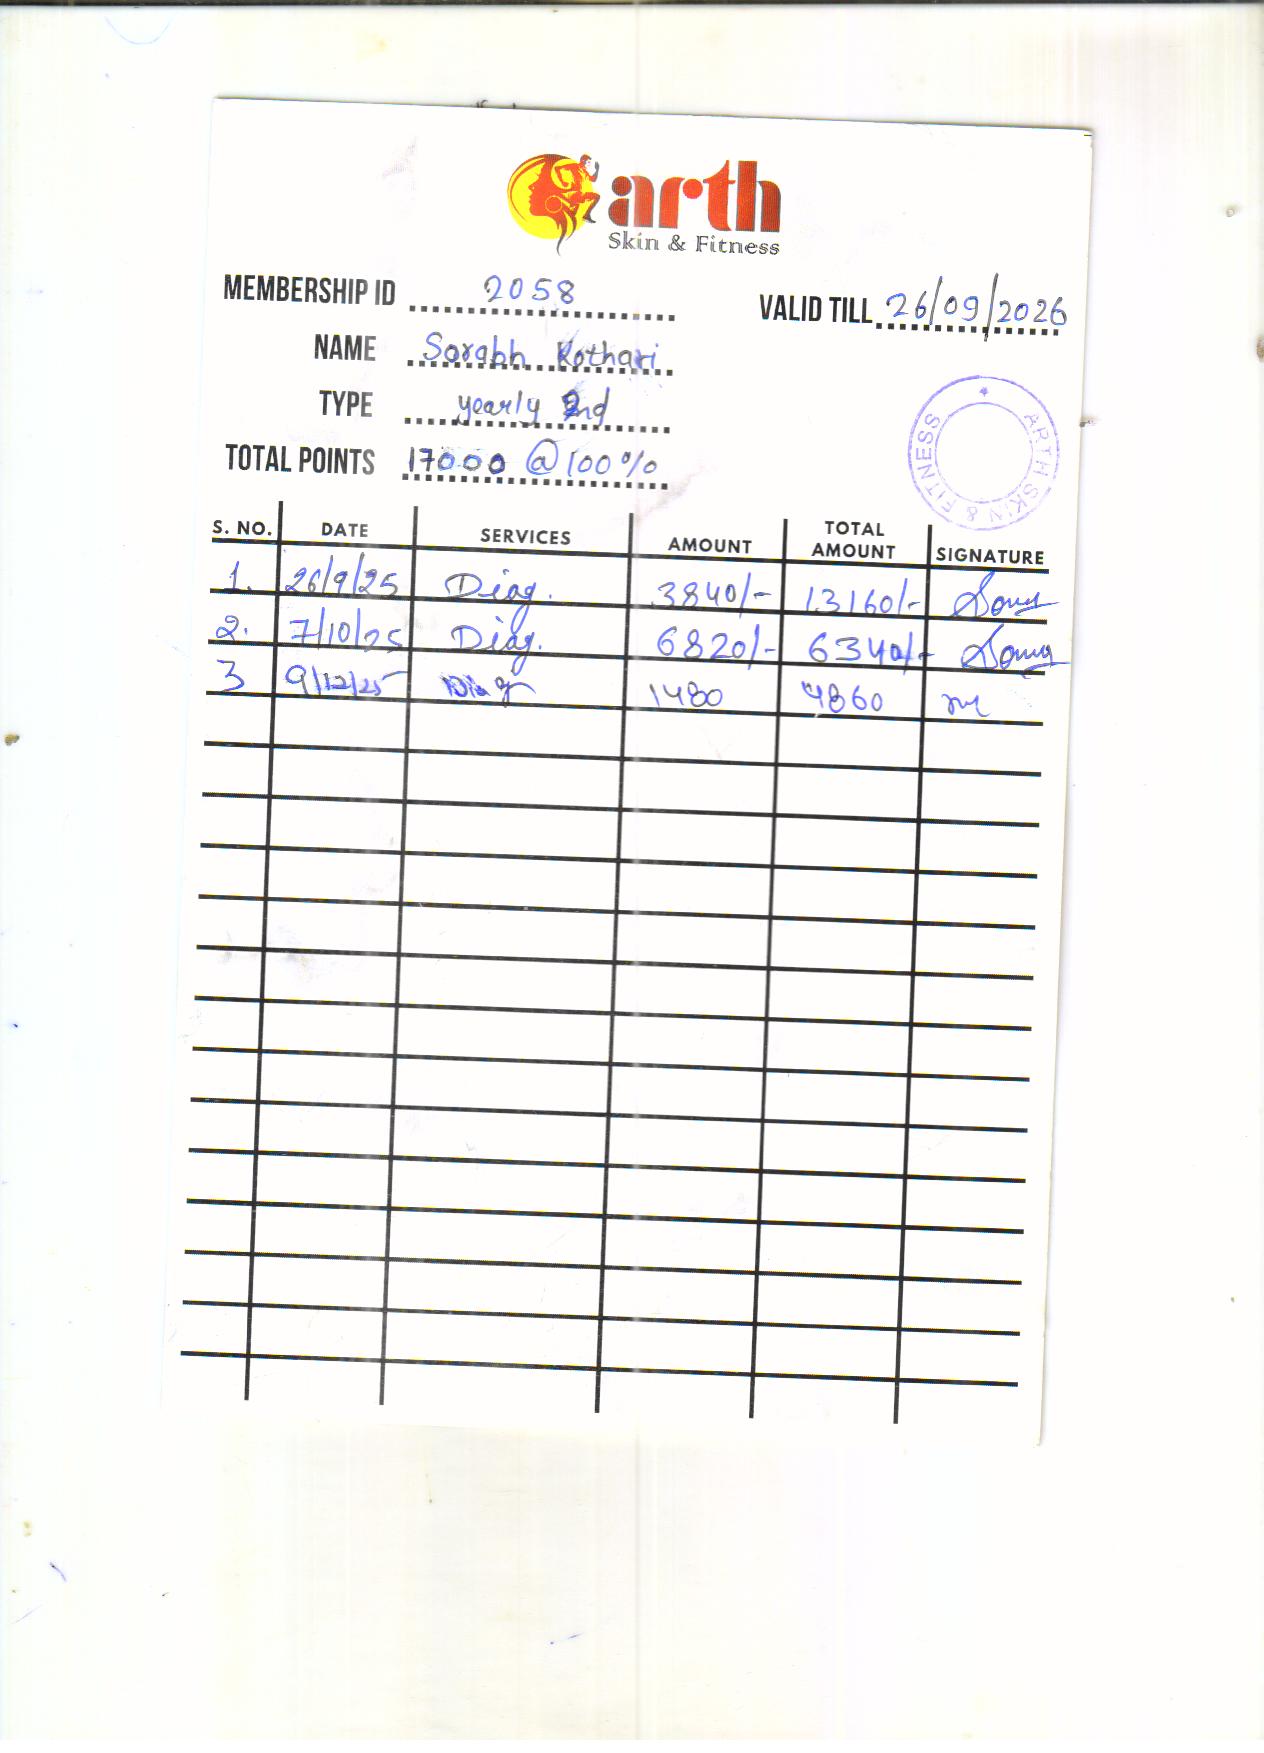 arth
Skin & Fitness
MEMBERSHIP ID 2058
VALID TILL 26/09/2026
NAME Sorabh Kothari
TYPE yearly 2nd
TOTAL POINTS 17000 @ 100%
ARTH SKIN & FITNESS
S. NO. DATE SERVICES AMOUNT TOTAL AMOUNT SIGNATURE
1. 26/9/25 Diag. 3840/- 13160/-
2. 7/10/25 Diag. 6820/- 6340/-
3 9/12/25 Diag 1480 4860